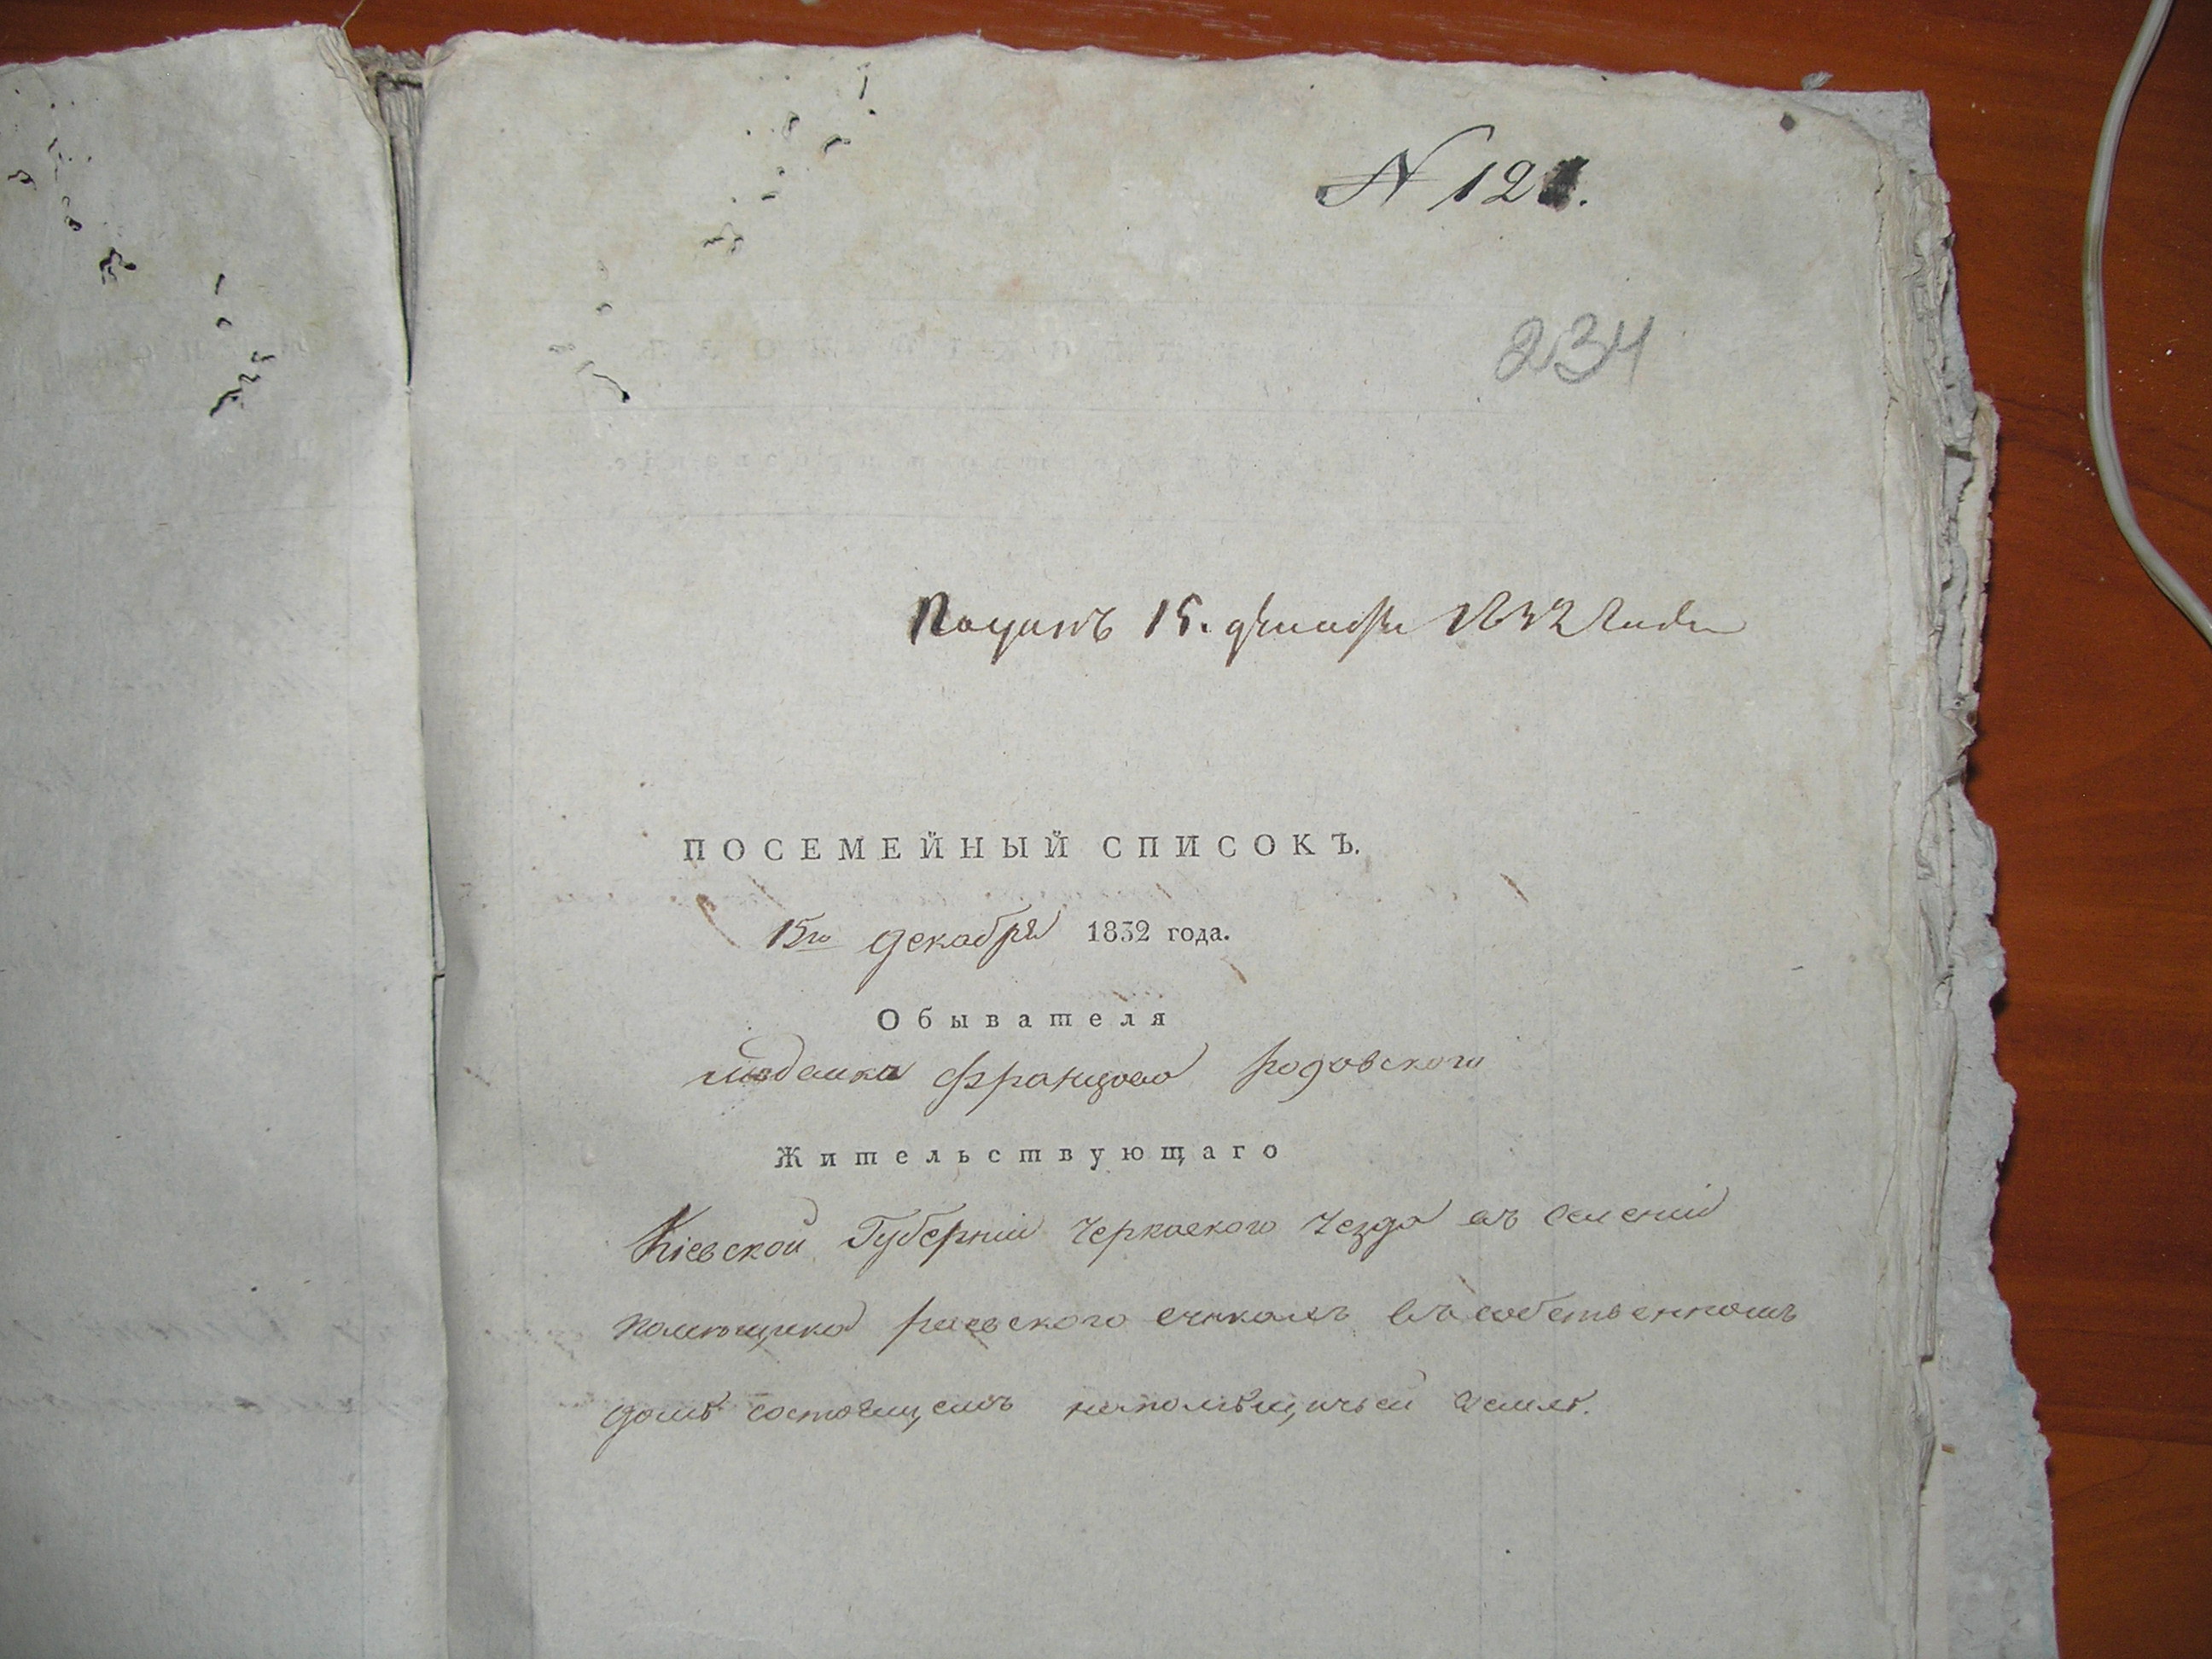 N 121.
234
Поданъ 15. декабря 1832 года
ПОСЕМЕЙНЫЙ СПИСОКЪ.
15го декабря 1832 года.
Обывателя
Родовского
Жительствующаго
Кіевской Губерніи Черкаского уезда въ селеніи
помѣщика раевского въ собственномъ
домѣ состоящемъ напомѣщичьей землѣ.